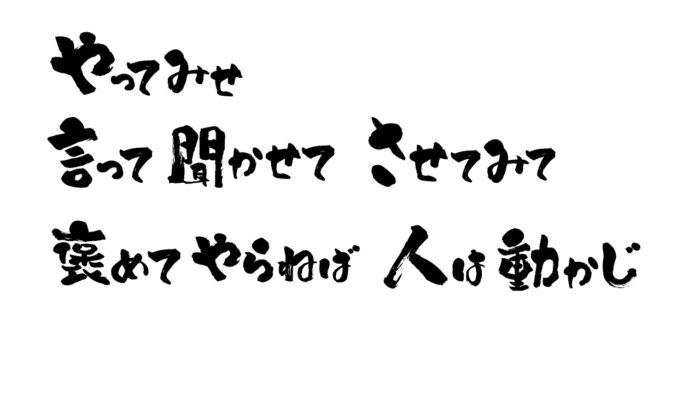 やってみせ
言って 聞かせて させてみて
褒めて やらねば 人は 動かじ